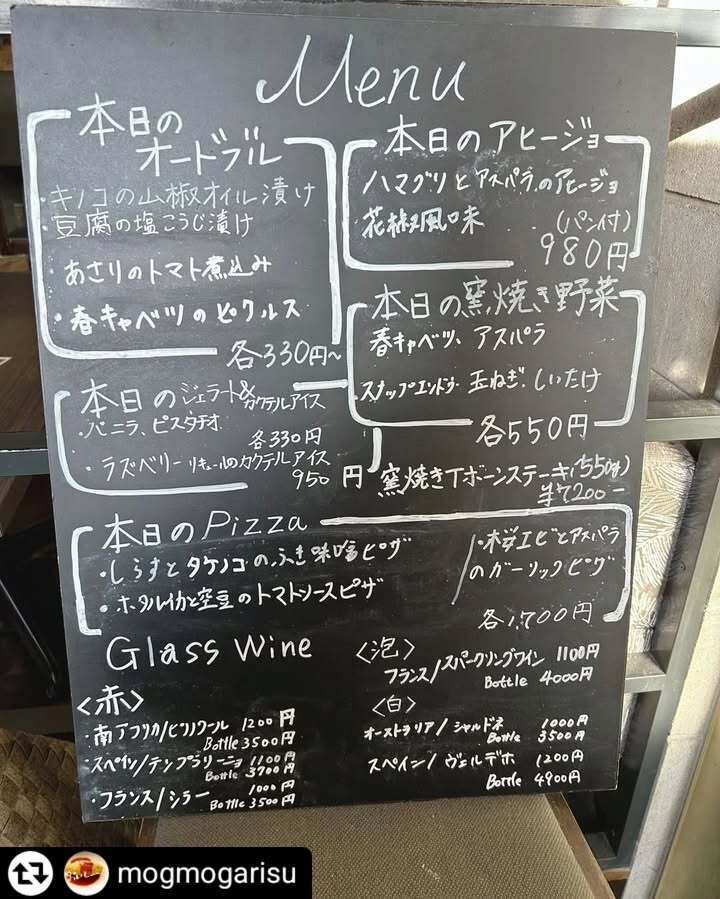 Menu
本日の
オードブル
・キノコの山椒オイル漬け
・豆腐の塩こうじ漬け
・あさりのトマト煮込み
・春キャベツのピクルス
各330円~
本日のアヒージョ
ハマグリとアスパラのアヒージョ
花椒風味 (パン付)
980円
本日の窯焼き野菜
春キャベツ、アスパラ
スナップエンドウ、玉ねぎ、しいたけ
各550円
本日のジェラート&
カクテルアイス
・バニラ、ピスタチオ
各330円
・ラズベリーリキュールのカクテルアイス
950円
窯焼きTボーンステーキ(550g)
¥7200-
本日のPizza
・しらすとタケノコのふき味噌ピザ
・ホタルイカと空豆のトマトソースピザ
・桜エビとアスパラ
のガーリックピザ
各1,700円
Glass Wine
<赤>
・南アフリカ/ピノノワール 1200円
Bottle 3500円
・スペイン/テンプラリーニョ 1100円
Bottle 3700円
・フランス/シラー 1000円
Bottle 3500円
<泡>
フランス/スパークリングワイン 1100円
Bottle 4000円
<白>
オーストラリア/シャルドネ 1000円
Bottle 3500円
スペイン/ヴェルデホ 1200円
Bottle 4900円
mogmogarisu